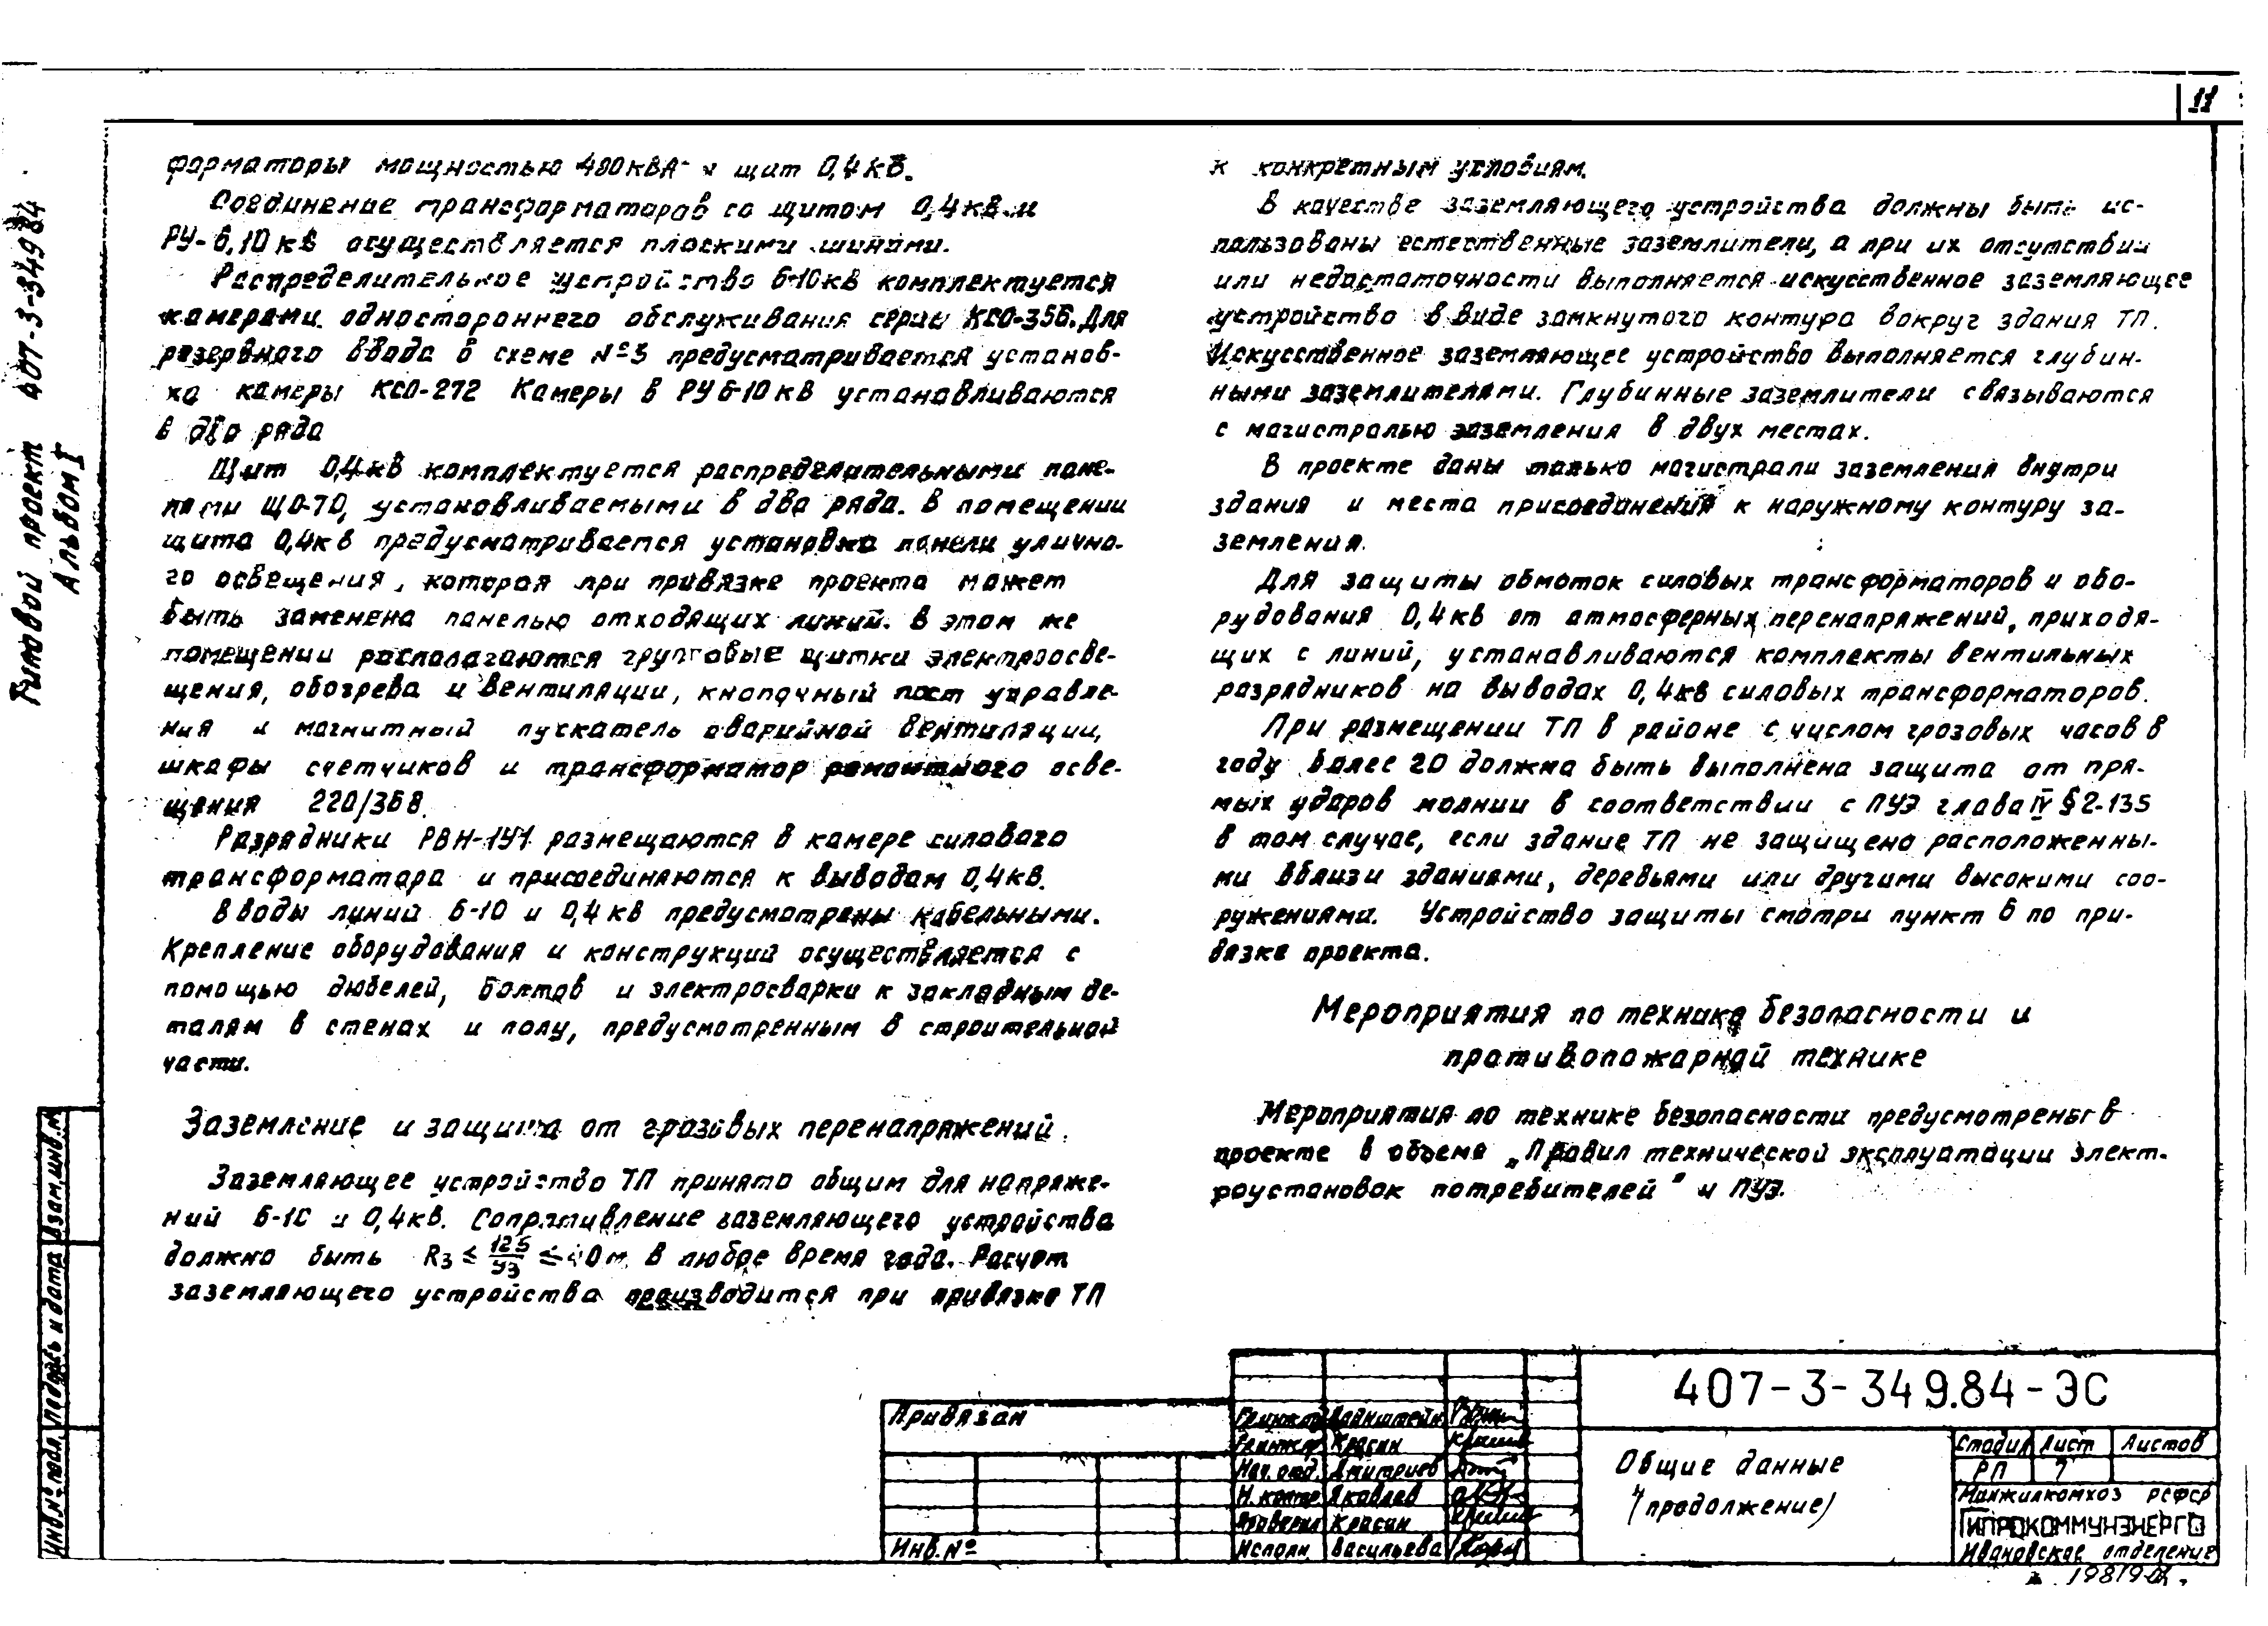 11
Типовой проект 407-3-349.84
Альбом I
форматоры мощностью 400кВА и щит 0,4кВ.
Соединение трансформаторов со щитом 0,4кВ и
РУ-6,10кВ осуществляется плоскими шинами.
Распределительное устройство 6-10кВ комплектуется
камерами одностороннего обслуживания серии КСО-366. Для
резервного ввода в схеме №3 предусматривается установ-
ка камеры КСО-272 Камеры в РУ 6-10кВ устанавливаются
в два ряда
Щит 0,4кВ комплектуется распределительными пане-
лями ЩО-70, устанавливаемыми в два ряда. В помещении
щита 0,4кВ предусматривается установка панели улично-
го освещения, которая при привязке проекта может
быть заменена панелью отходящих линий. В этом же
помещении располагаются групповые щитки электроосве-
щения, обогрева и вентиляции, кнопочный пост управле-
ния и магнитный пускатель аварийной вентиляции,
шкафы счетчиков и трансформатор ремонтного осве-
щения 220/36В.
Разрядники РВН-1У1 размещаются в камере силового
трансформатора и присоединяются к выводам 0,4кВ.
Вводы линий 6-10 и 0,4кВ предусмотрены кабельными.
Крепление оборудования и конструкций осуществляется с
помощью дюбелей, болтов и электросварки к закладным де-
талям в стенах и полу, предусмотренным в строительной
части.
Заземление и защита от грозовых перенапряжений.
Заземляющее устройство ТП принято общим для напряже-
ний 6-10 и 0,4кВ. Сопротивление заземляющего устройства
должно быть Rз ≤ 125/Уз ≤ 4Ом в любое время года. Расчет
заземляющего устройства производится при привязке ТП
к конкретным условиям.
В качестве заземляющего устройства должны быть ис-
пользованы естественные заземлители, а при их отсутствии
или недостаточности выполняется искусственное заземляющее
устройство в виде замкнутого контура вокруг здания ТП.
Искусственное заземляющее устройство выполняется глубин-
ными заземлителями. Глубинные заземлители связываются
с магистралью заземления в двух местах.
В проекте даны только магистрали заземления внутри
здания и места присоединения к наружному контуру за-
земления.
Для защиты обмоток силовых трансформаторов и обо-
рудования 0,4кВ от атмосферных перенапряжений, приходя-
щих с линий, устанавливаются комплекты вентильных
разрядников на выводах 0,4кВ силовых трансформаторов.
При размещении ТП в районе с числом грозовых часов в
году более 20 должна быть выполнена защита от пря-
мых ударов молнии в соответствии с ПУЭ глава IV §2-135
в том случае, если здание ТП не защищено расположенны-
ми вблизи зданиями, деревьями или другими высокими соо-
ружениями. Устройство защиты смотри пункт 6 по при-
вязке проекта.
Мероприятия по технике безопасности и
противопожарной технике
Мероприятия по технике безопасности предусмотрены в
проекте в объеме „Правил технической эксплуатации элект-
роустановок потребителей" и ПУЭ.
Инв.№ подл. Подпись и дата Взам.инв.№
Привязан
Инв.№
Гл.инж.пр Вайнштейн
Гл.инж.пр Красин
Нач.отд. Дмитриев
Н.контр. Яковлев
Проверил Красин
Исполн. Васильева
407-3-349.84-ЭС
Общие данные
(продолжение)
Стадия Лист Листов
РП 7
Минжилкомхоз РСФСР
ГИПРОКОММУНЭНЕРГО
Ивановское отделение
19819-01